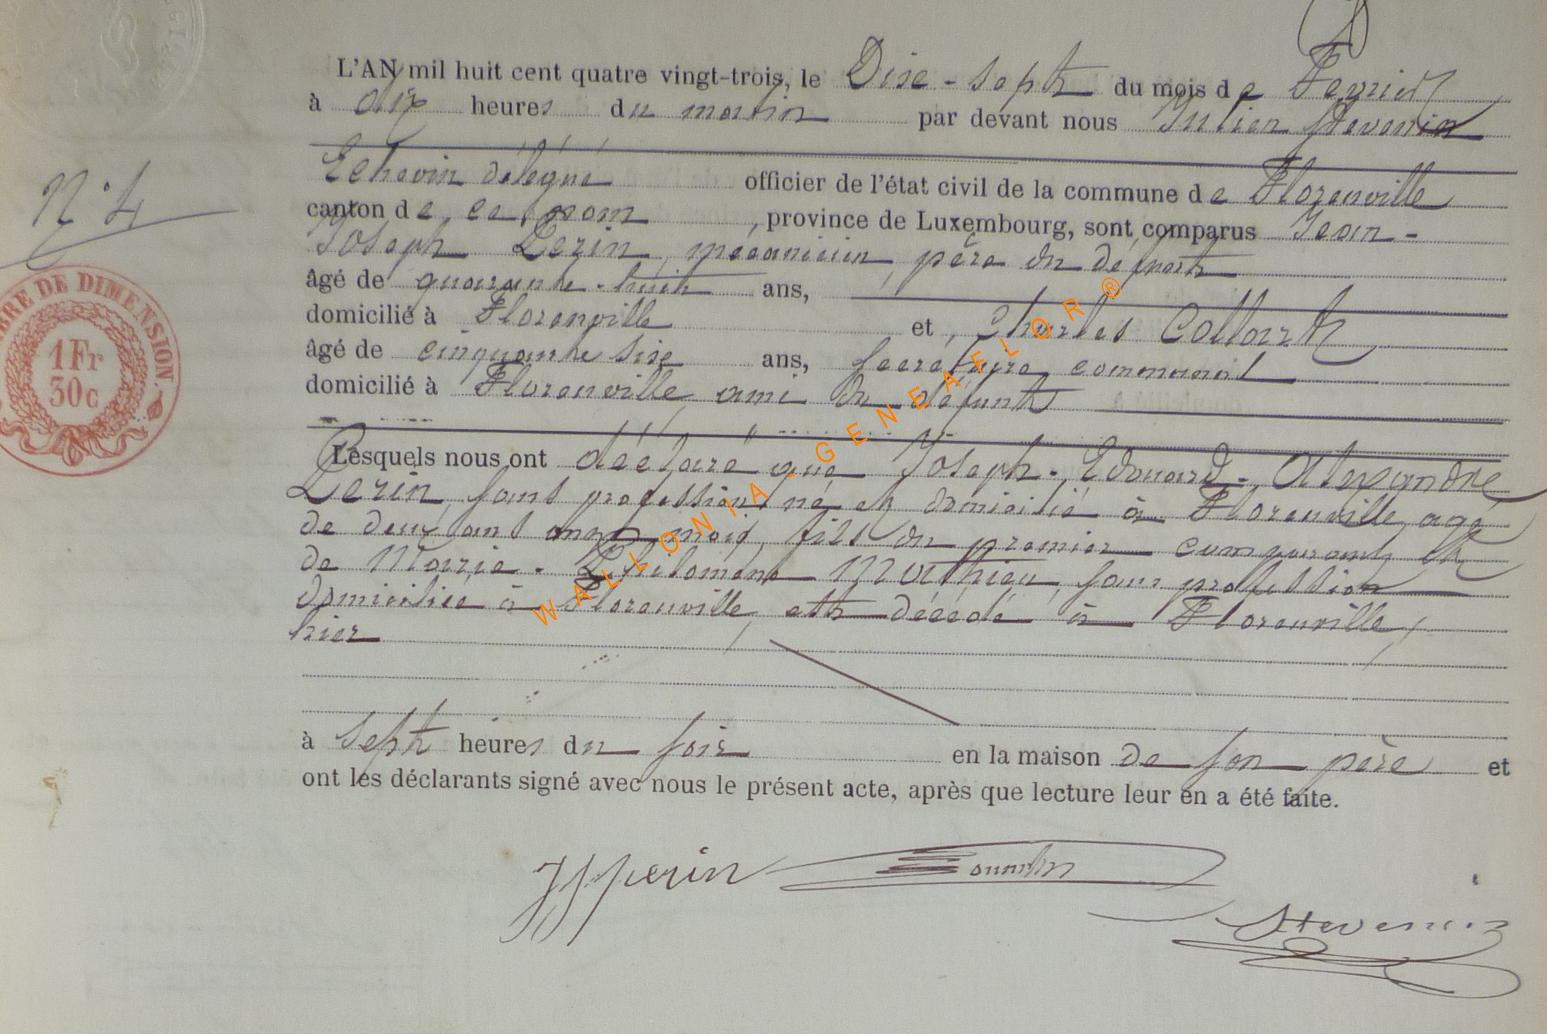 L'AN mil huit cent quatre vingt-trois, le Dixe-sept du mois de Fevrier
à dix heures du matin par devant nous Julien Stevenin
Echevin délégué officier de l'état civil de la commune de Florenville
N° 4
canton de ce nom, province de Luxembourg, sont comparus Jean-
Joseph Perin, mecanicien, père du défunt
âgé de quarante-huit ans,
domicilié à Florenville et Charles Collart
âgé de cinquante sixe ans, secretaire communal
domicilié à Florenville, ami du défunt
TIMBRE DE DIMENSION.
1Fr
30c
Lesquels nous ont déclaré que Joseph-Edouard-Alexandre
Perin sans profession, né et domicilié à Florenville, agé
de deux ans onze mois, fils du premier comparant et
de Marie-Philomène Mathieu, sans profession
domiciliée à Florenville, est décédé à Florenville,
hier
à sept heures du soir en la maison de son père et
ont les déclarants signé avec nous le présent acte, après que lecture leur en a été faite.
JJperin
Stevenin
WALLONIA-GENEAFLOR®